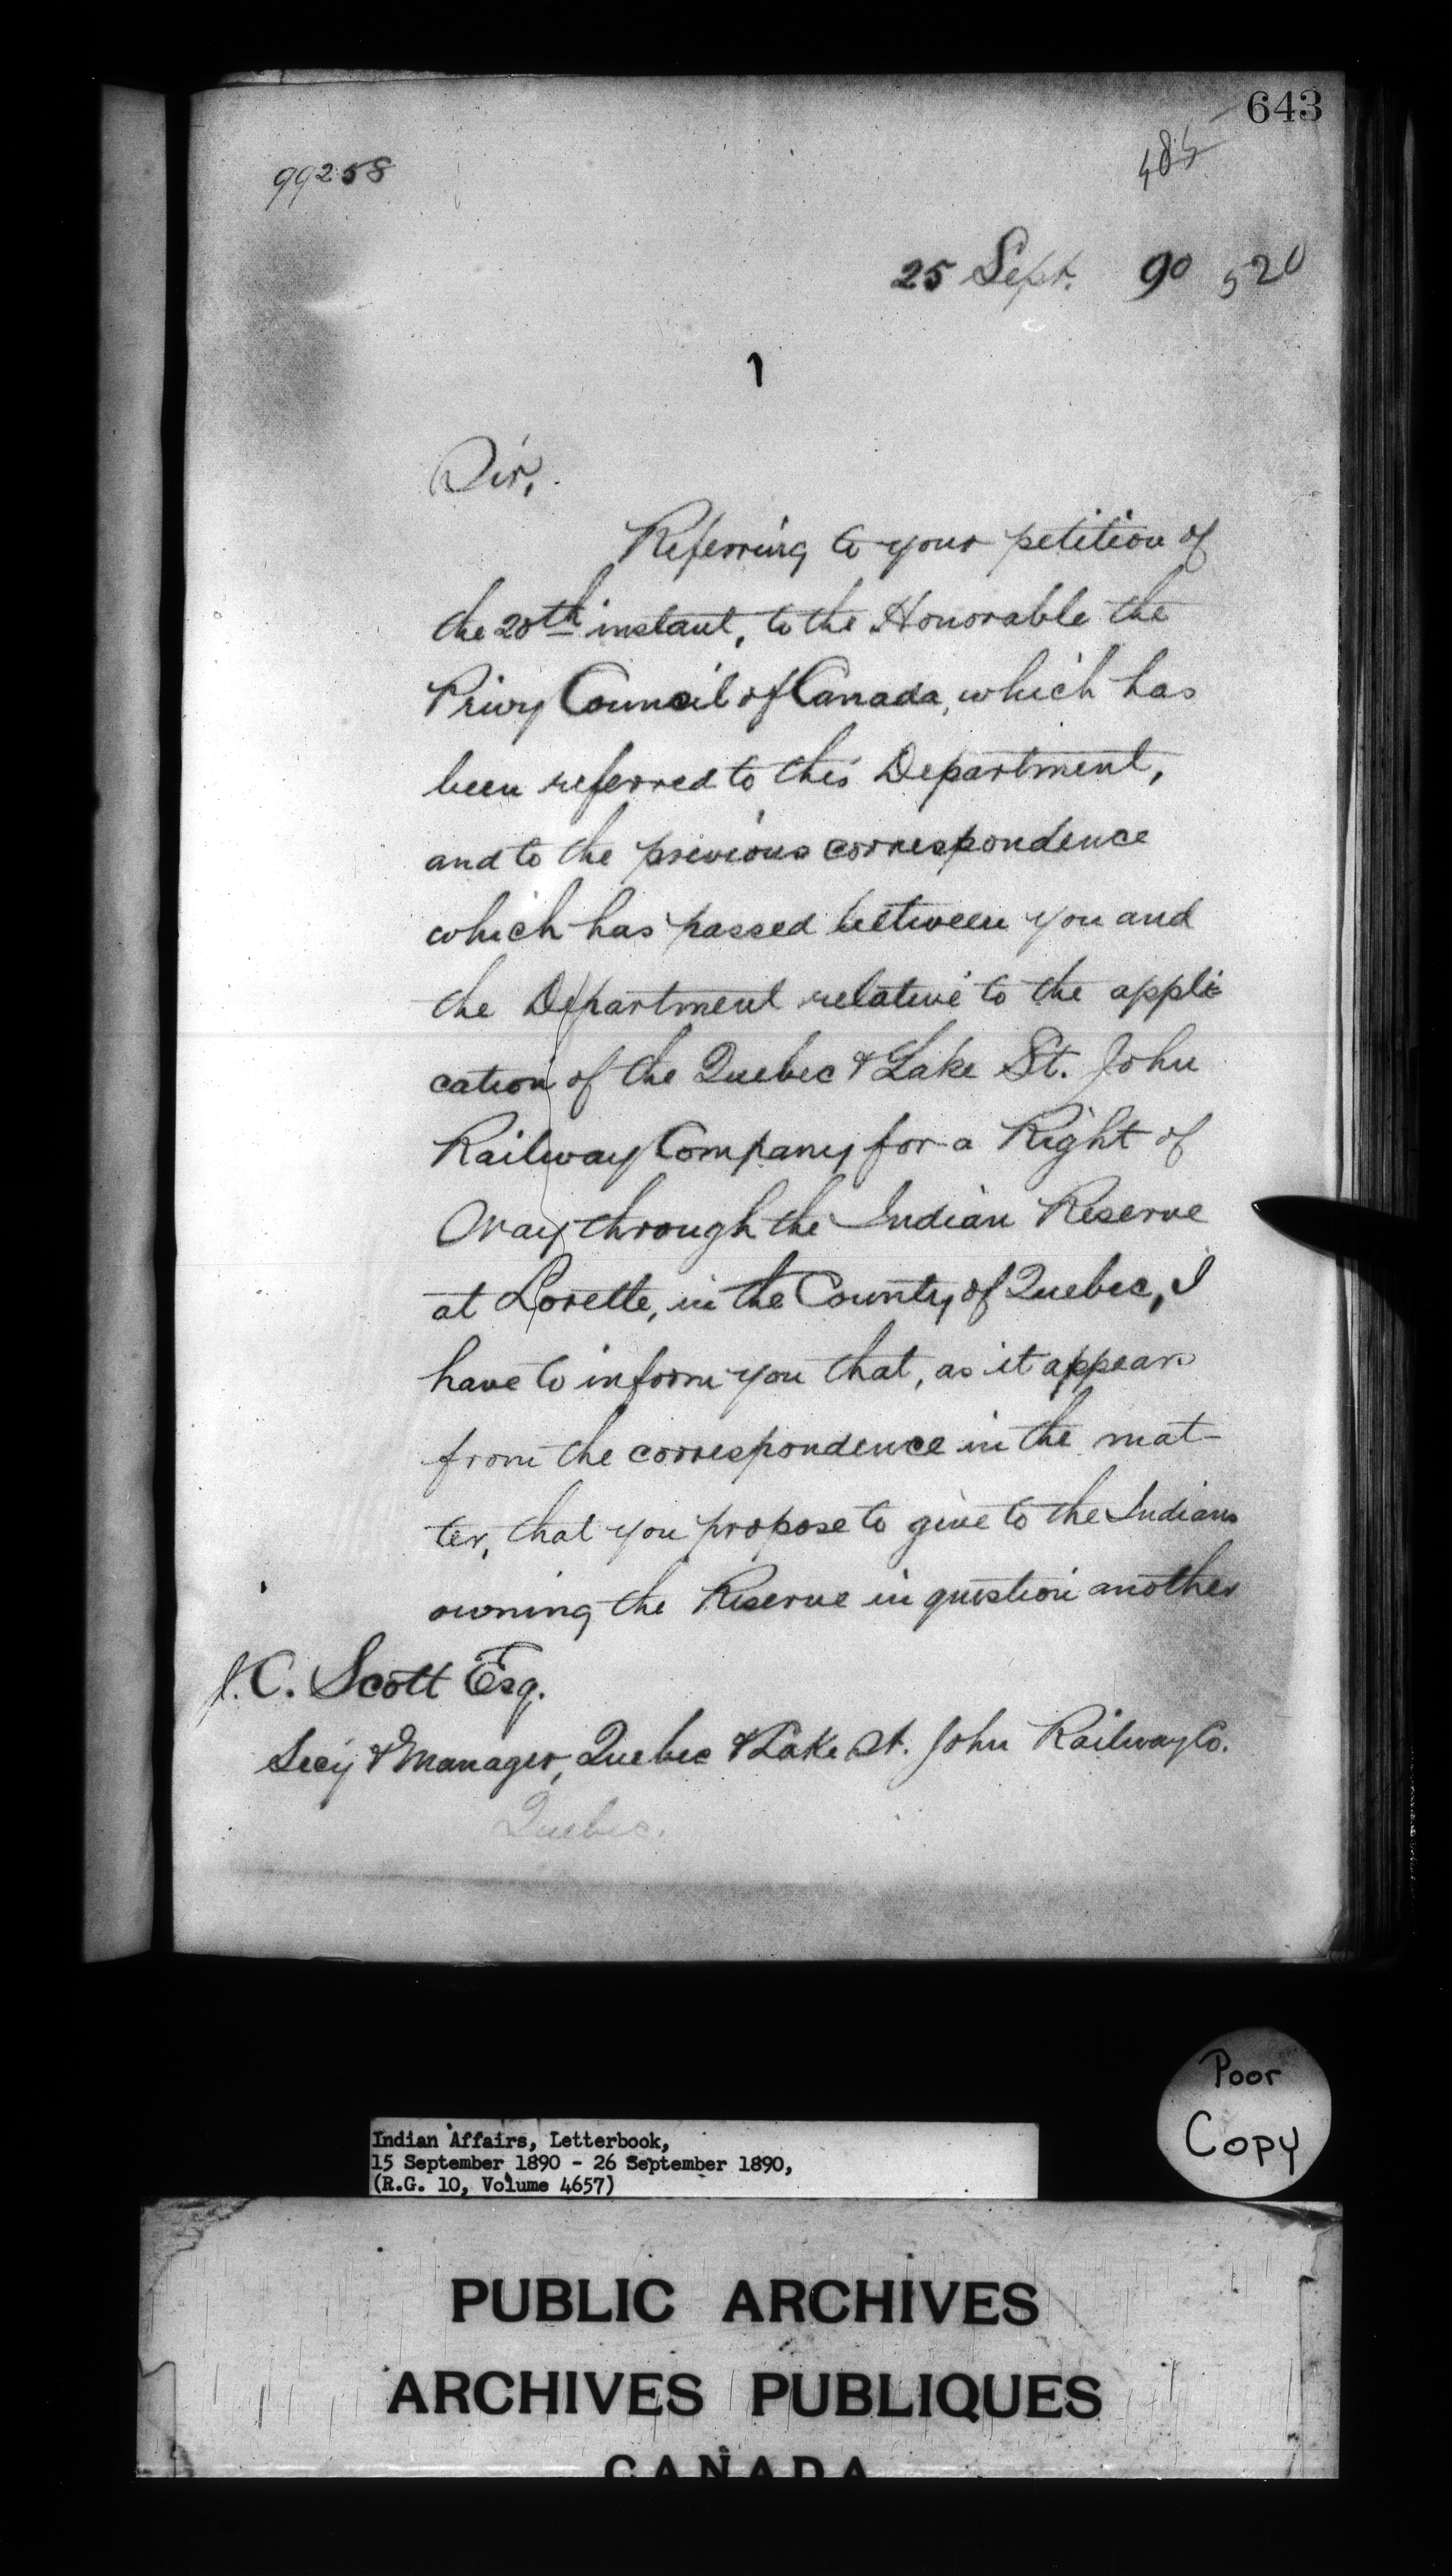 643
99258
25 Sept. 90 520
1
Sir,
Referring to your petition of
the 20th instant, to the Honorable the
Privy Council of Canada, which has
been referred to this Department,
and to the previous correspondence
which has passed between you and
the Department relative to the appli-
cation of the Quebec & Lake St. John
Railway Company for a Right of
Way through the Indian Reserve
at Lorette, in the County of Quebec, I
have to inform you that, as it appears
from the correspondence in the mat-
ter, that you propose to give to the Indians
owning the Reserve in question another
J.C. Scott Esq.
Secy & Manager, Quebec & Lake St. John Railway Co.
Quebec.
Poor
Copy
Indian Affairs, Letterbook,
15 September 1890 - 26 September 1890,
(R.G. 10, Volume 4657)
PUBLIC ARCHIVES
ARCHIVES PUBLIQUES
CANADA